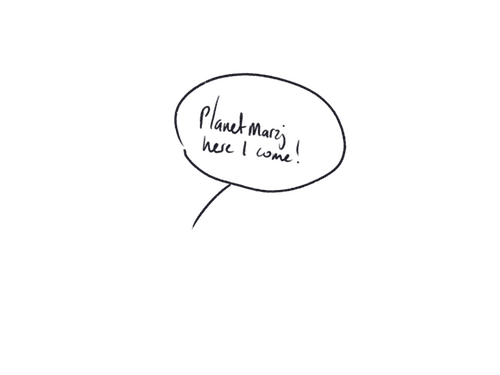 Planet Marzj
here I come!